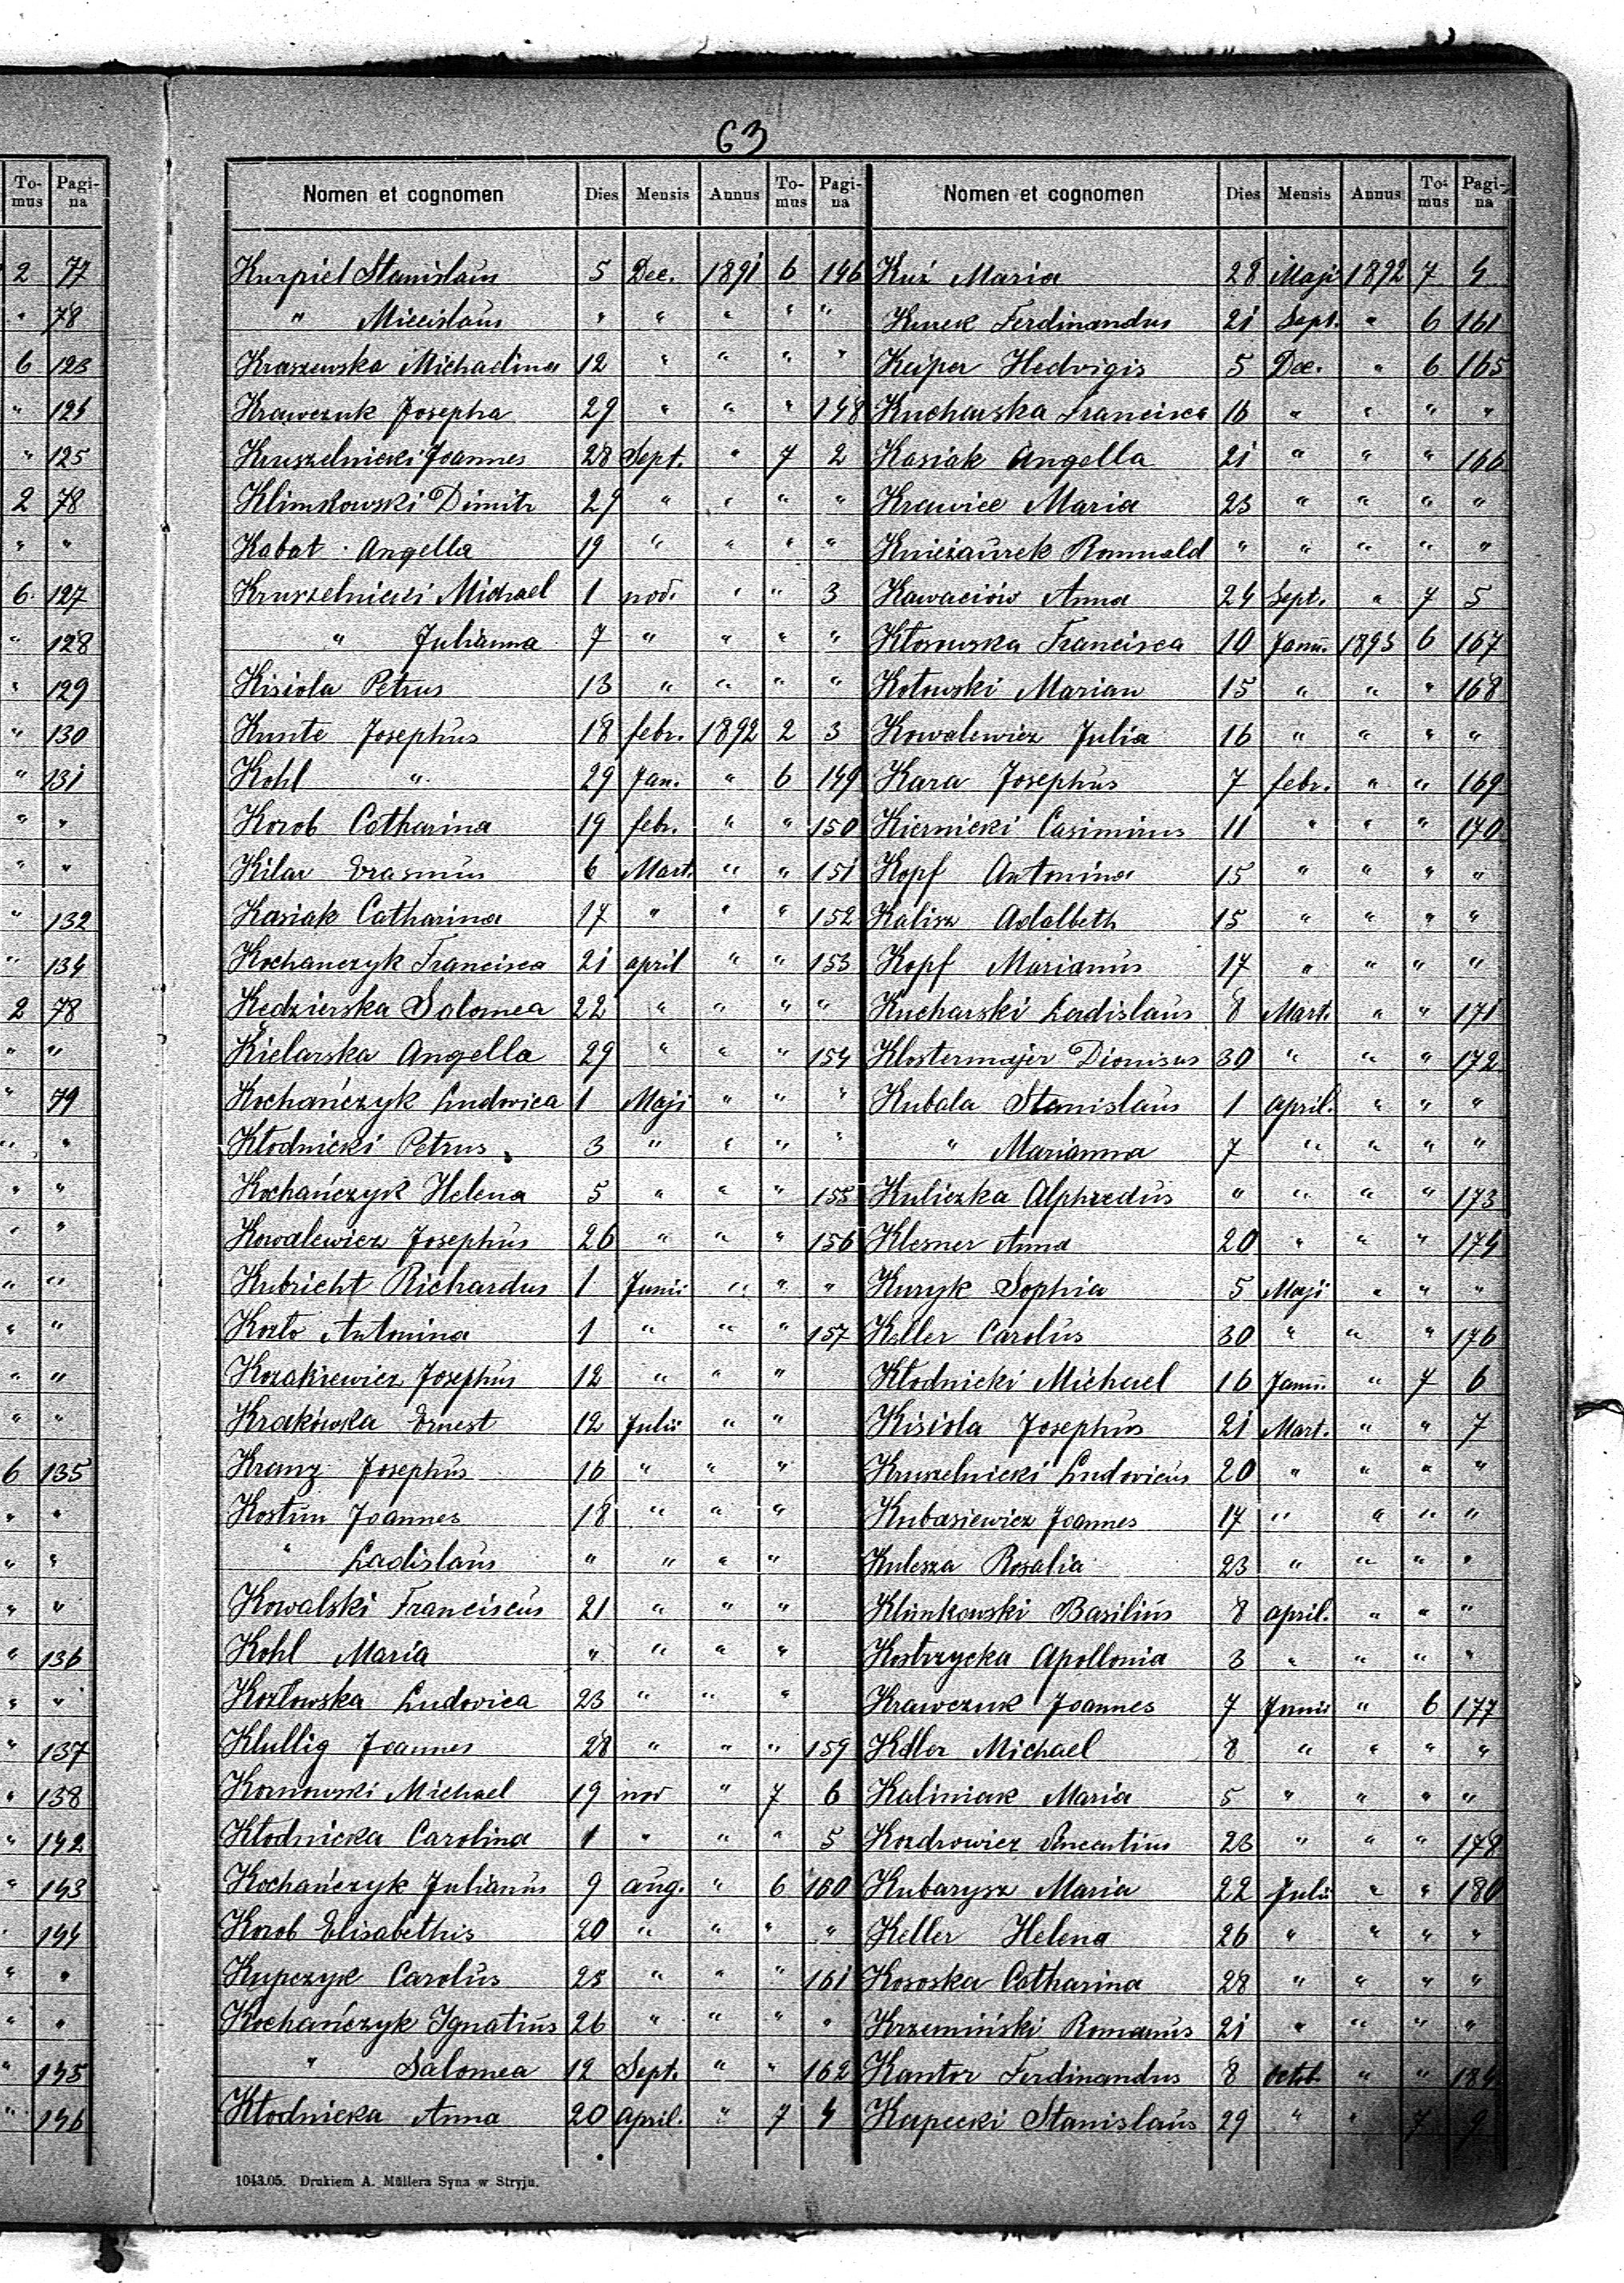 63
To-mus Pagi-na
2 77
" 78
6 123
" 124
" 125
2 78
" "
6. 127
" 128
" 129
" 130
" 131
" "
" "
" 132
" 134
2 78
" "
" 79
" "
" "
" "
" "
" "
" "
" "
6 135
" "
" "
" "
" 136
" "
" 137
" 138
" 142
" 143
" 144
" "
" "
" 145
" 146
Nomen et cognomen Dies Mensis Annus To-mus Pagi-na
Kurpiel Stanislaus 5 Dec. 1891 6 146
" Miecislaus " " " " "
Kraszewska Michaelina 12 " " " "
Krawczuk Josepha 29 " " " 148
Kruszelnicki Joannes 28 Sept. " 7 2
Klimkowski Dimitr 29 " " " "
Kabat Angella 19 " " " "
Kruszelnicki Michael 1 nov. " " 3
" Julianna 7 " " " "
Kisiola Petrus 13 " " " "
Kunte Josephus 18 febr. 1892 2 3
Kohl " 29 Jan. " 6 149
Korob Catharina 19 febr. " " 150
Kilar Erasmus 6 Mart. " " 151
Kasiak Catharina 17 " " " 152
Kochanczyk Francisca 21 april " " 153
Kedzierska Salomea 22 " " " "
Kielarska Angella 29 " " " 154
Kochańczyk Ludovica 1 Maji " " "
Kłodnicki Petrus 3 " " " "
Kochańczyk Helena 5 " " " 155
Kowalewicz Josephus 26 " " " 156
Kubricht Richardus 1 Junii " " "
Kozło Antonina 1 " " " 157
Kozakiewicz Josephus 12 " " "
Krakówska Ernest 12 Julii " "
Kranz Josephus 16 " " "
Kostun Joannes 18 " " "
" Ladislaus " " " "
Kowalski Franciscus 21 " " "
Kohl Maria " " " "
Kozłowska Ludovica 23 " " "
Klullig Joannes 28 " " " 159
Kornowski Michael 19 nov " 7 6
Kłodnicka Carolina 1 " " " 5
Kochańczyk Julianus 9 aug. " 6 160
Korob Elisabethis 20 " " " "
Kupczyk Carolus 25 " " " 161
Kochańczyk Ignatius 26 " " " "
" Salomea 12 Sept. " " 162
Kłodnicka Anna 20 April. " 7 4
Nomen et cognomen Dies Mensis Annus To-mus Pagi-na
Kuź Maria 28 Maji 1892 7 4
Kurek Ferdinandus 21 Sept. " 6 161
Keiper Hedvigis 5 Dec. " 6 165
Kucharska Francisca 16 " " " "
Kasiak Angella 21 " " " 166
Krawiec Maria 23 " " " "
Knieżaurek Romuald " " " " "
Kawaciów Anna 24 Sept. " 7 5
Kłosowska Francisca 10 Janu. 1893 6 167
Kotowski Marian 15 " " " 168
Kowalewicz Julia 16 " " " "
Kara Josephus 7 febr. " " 169
Kiernicki Casimirus 11 " " " 170
Kopf Antonina 15 " " " "
Kalisz Adalbeth 15 " " " "
Kopf Marianus 17 " " " "
Kucharski Ladislaus 8 Mart. " " 171
Klostermajer Dionisus 30 " " " 172
Kubala Stanislaus 1 april. " " "
" Marianna 7 " " " "
Kuliczka Alphredus " " " " 173
Klesner Anna 20 " " " 174
Kuryk Sophia 5 Maji " " "
Keller Carolus 30 " " " 176
Kłodnicki Michael 16 Janu. " 7 6
Kisiola Josephus 21 Mart. " " 7
Kruszelnicki Ludovicus 20 " " " "
Kubasiewicz Joannes 17 " " " "
Kulesza Rosalia 23 " " " "
Klimkowski Basilius 8 april. " " "
Kostrzycka Apollonia 3 " " " "
Krawczuk Joannes 7 Junii " 6 177
Keller Michael 8 " " " "
Kaliniak Maria 5 " " " "
Kozdrowicz Vincentius 23 " " " 178
Kubarysz Maria 22 Julii " " 180
Keller Helena 26 " " " "
Kososka Catharina 28 " " " "
Krzemiński Romanus 21 " " " "
Kantor Ferdinandus 8 octob. " " 184
Karpecki Stanislaus 29 " " 7 9
1043.05. Drukiem A. Müllera Syna w Stryju.